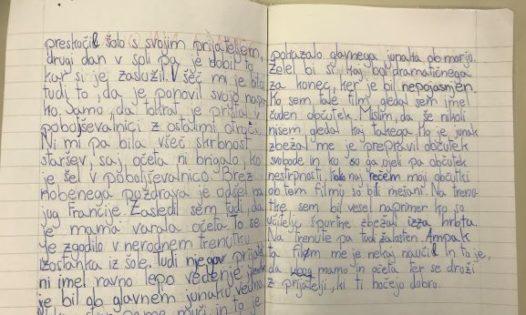 preskočil šolo s svojim prijateljem,
drugi dan v šoli pa je dobil to
kar si je zaslužil. Všeč mi je bilo
tudi to, da je ponovil svojo
ko. Samo, da tokrat je pristal v
poboljševalnici z ostalimi otroci.
Ni mi pa bila všeč skrbnost
staršev, saj očeta ni brigalo, ko
je šel v poboljševalnico. Brez
nobenega pozdrava je odšel na
jug Francije. Zasledil sem tudi, da
je mama varala očeta. To se
je zgodilo v nerodnem trenutku
izostanka iz šole. Tudi njegov
ni imel ravno lepo vedenje
je bil ob glavnem junaku vedno
pokazalo glavnega junaka ob morju.
Želel bi si, kaj bolj dramatičnega
za konec, ker je bil nepojasnjen.
Ko sem tale film, gledal sem imel
čuden občutek. Mislim, da še nikoli
nisem gledal kaj takega. Ko je junak
zbežal me je prepravil občutek
svobode in ko so ga ujeli pa občutek
nestrpnosti, naj rečem moji občutki
ob tem filmu so bili mešani. Na trenu-
tke sem bil vesel naprimer ko so
učitelju športne zbežali izza hrbta.
Na trenutke pa tudi žalosten. Ampak
ta film me je nekaj naučil in to je,
da mamo in očeta ter se druži
z prijatelji, ki ti hočejo dobro.